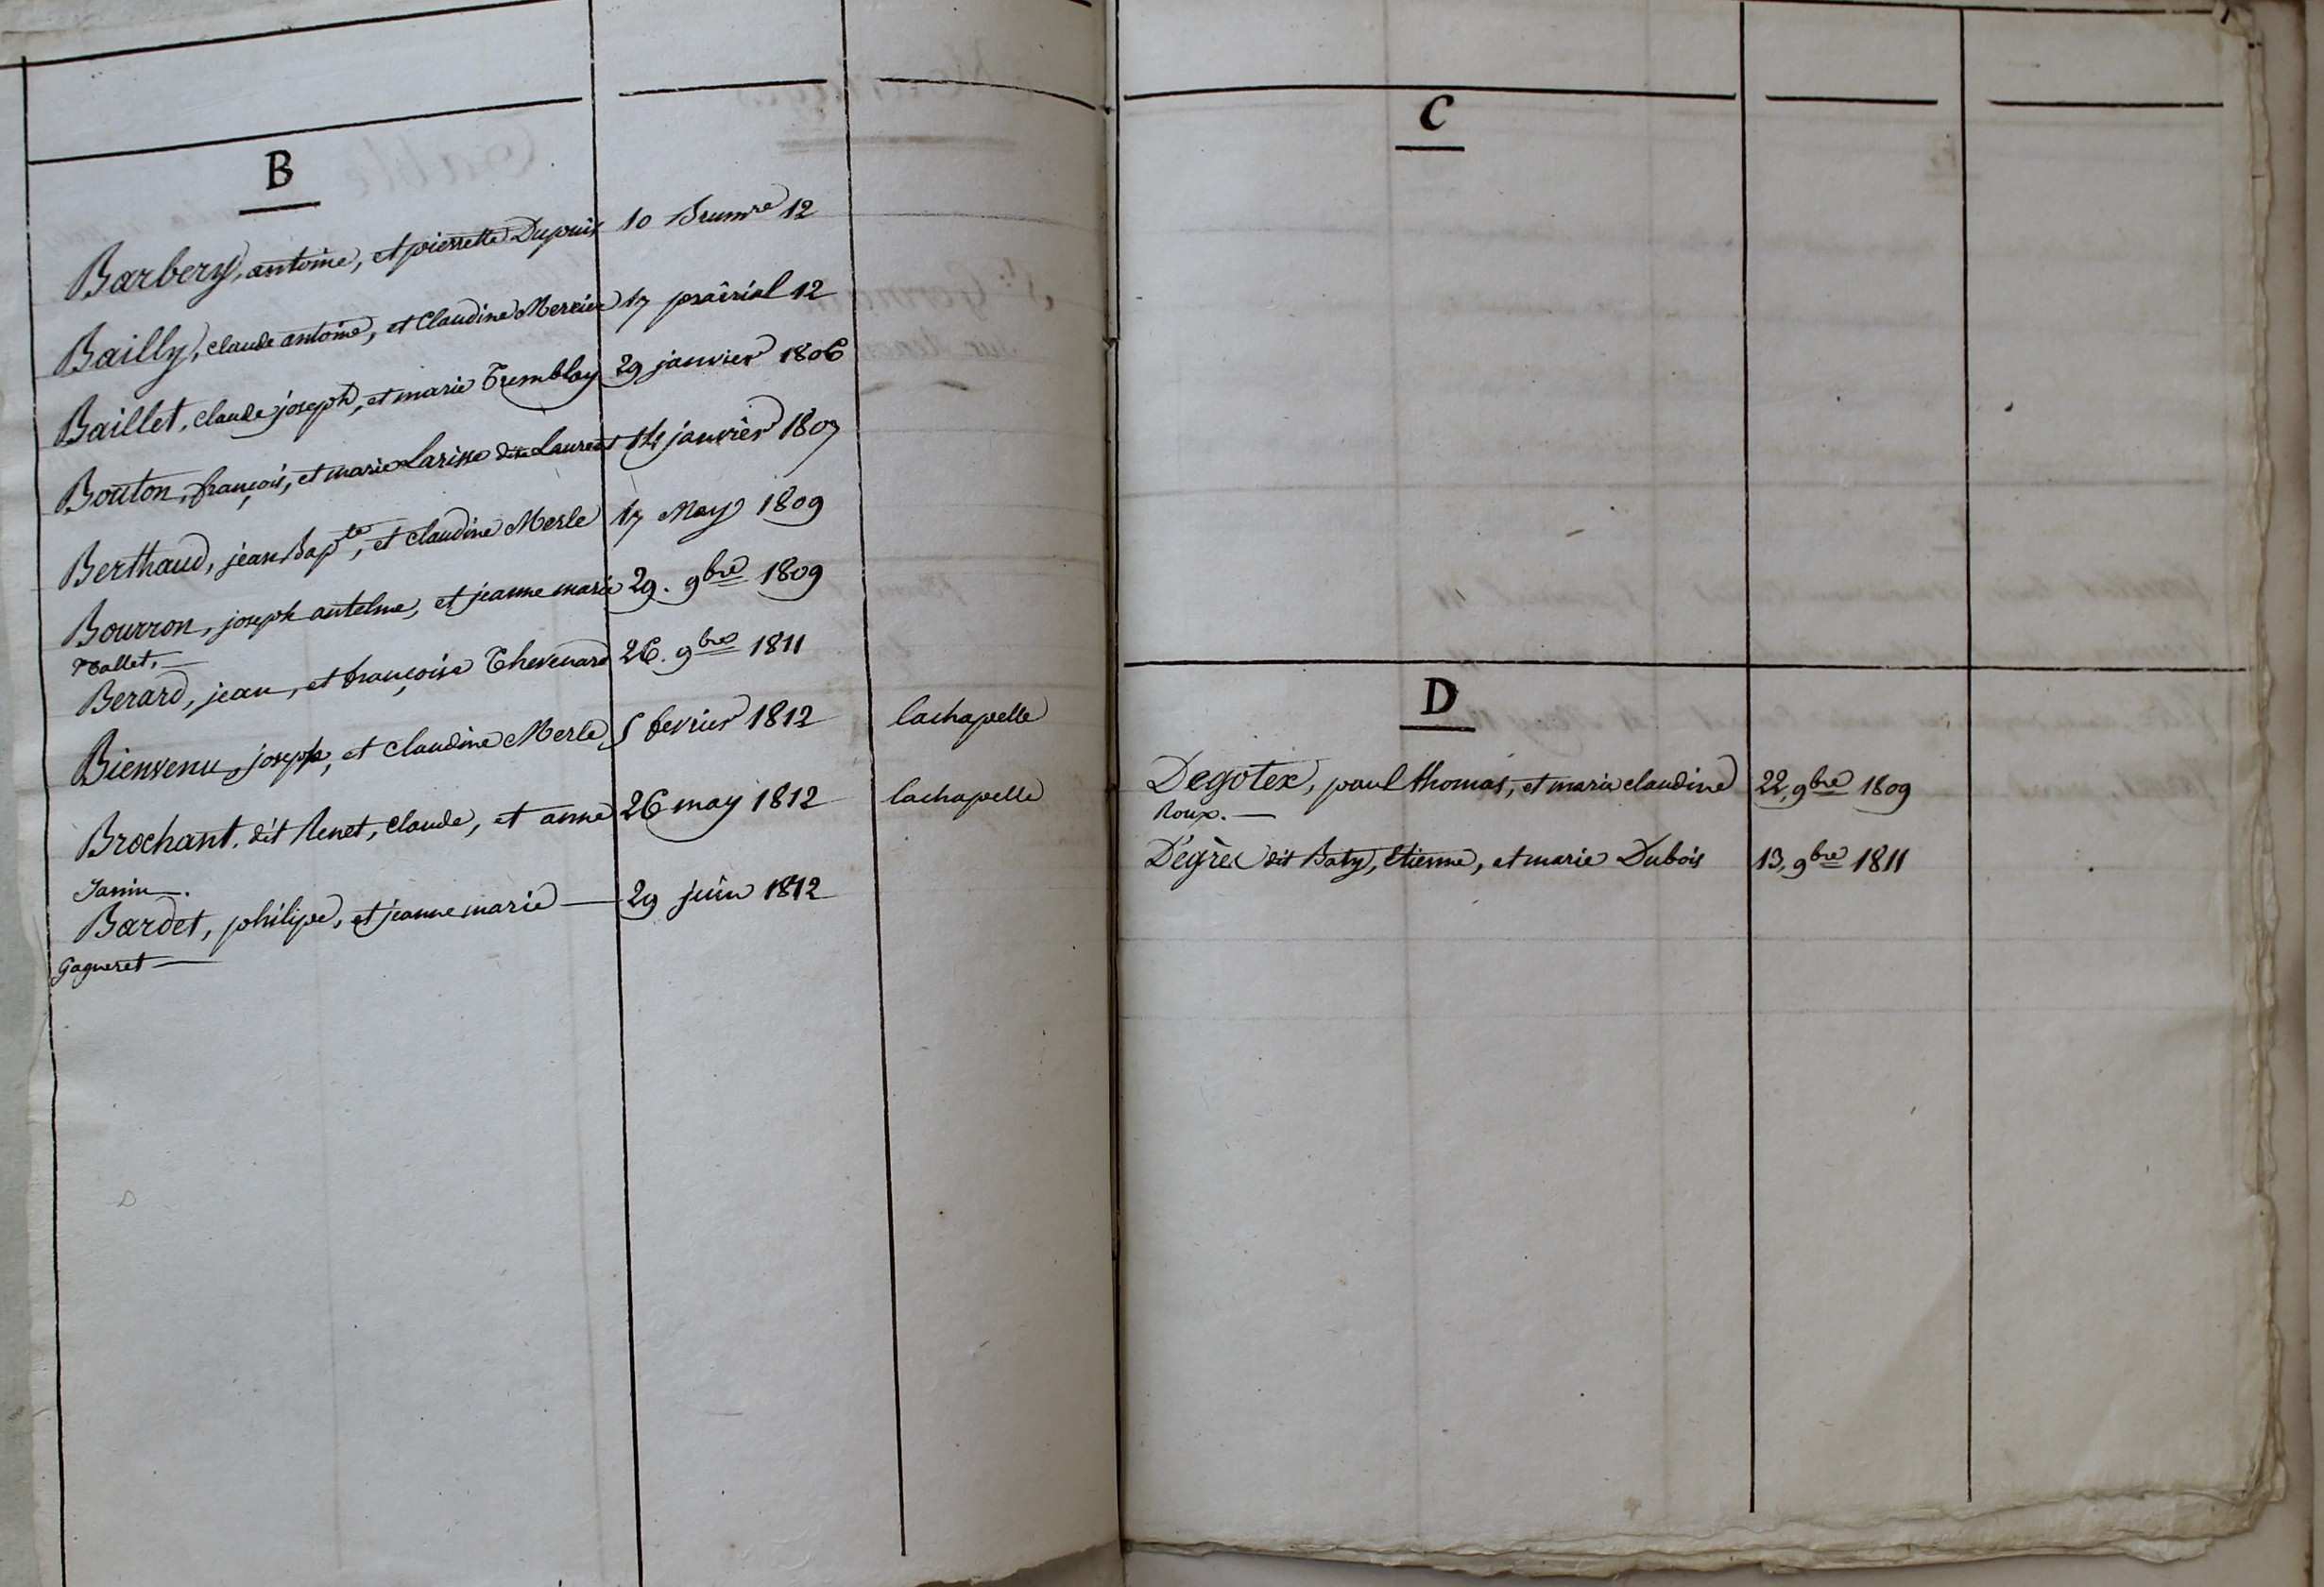 B
Barbery, antoine, et pierrette Dupuis 10 Brumre 12
Bailly, claude antoine, et Claudine Mercier 17 prairial 12
Baillet, claude joseph, et marie Tremblay 29 janvier 1806
Bouton, françois, et marie Larisse dite Laurent 14 janvier 1807
Berthaud, jean Bapte, et claudine Merle 17 May 1809
Bourron, joseph antelme, et jeanne marie 29. 9bre 1809
Tallet.
Berard, jean, et françoise Thevenard 26. 9bre 1811
Bienvenu, joseph, et claudine Merle 5 fevrier 1812 lachapelle
Brochant, dit Renet, claude, et anne 26 may 1812 lachapelle
Janin
Bardet, philipe, et jeanne marie 29 juin 1812
Gagneret
C
D
Degotex, paul thomas, et marie claudine 22, 9bre 1809
Roux.
Degrèz dit Baty, Etienne, et marie Dubois 13, 9bre 1811